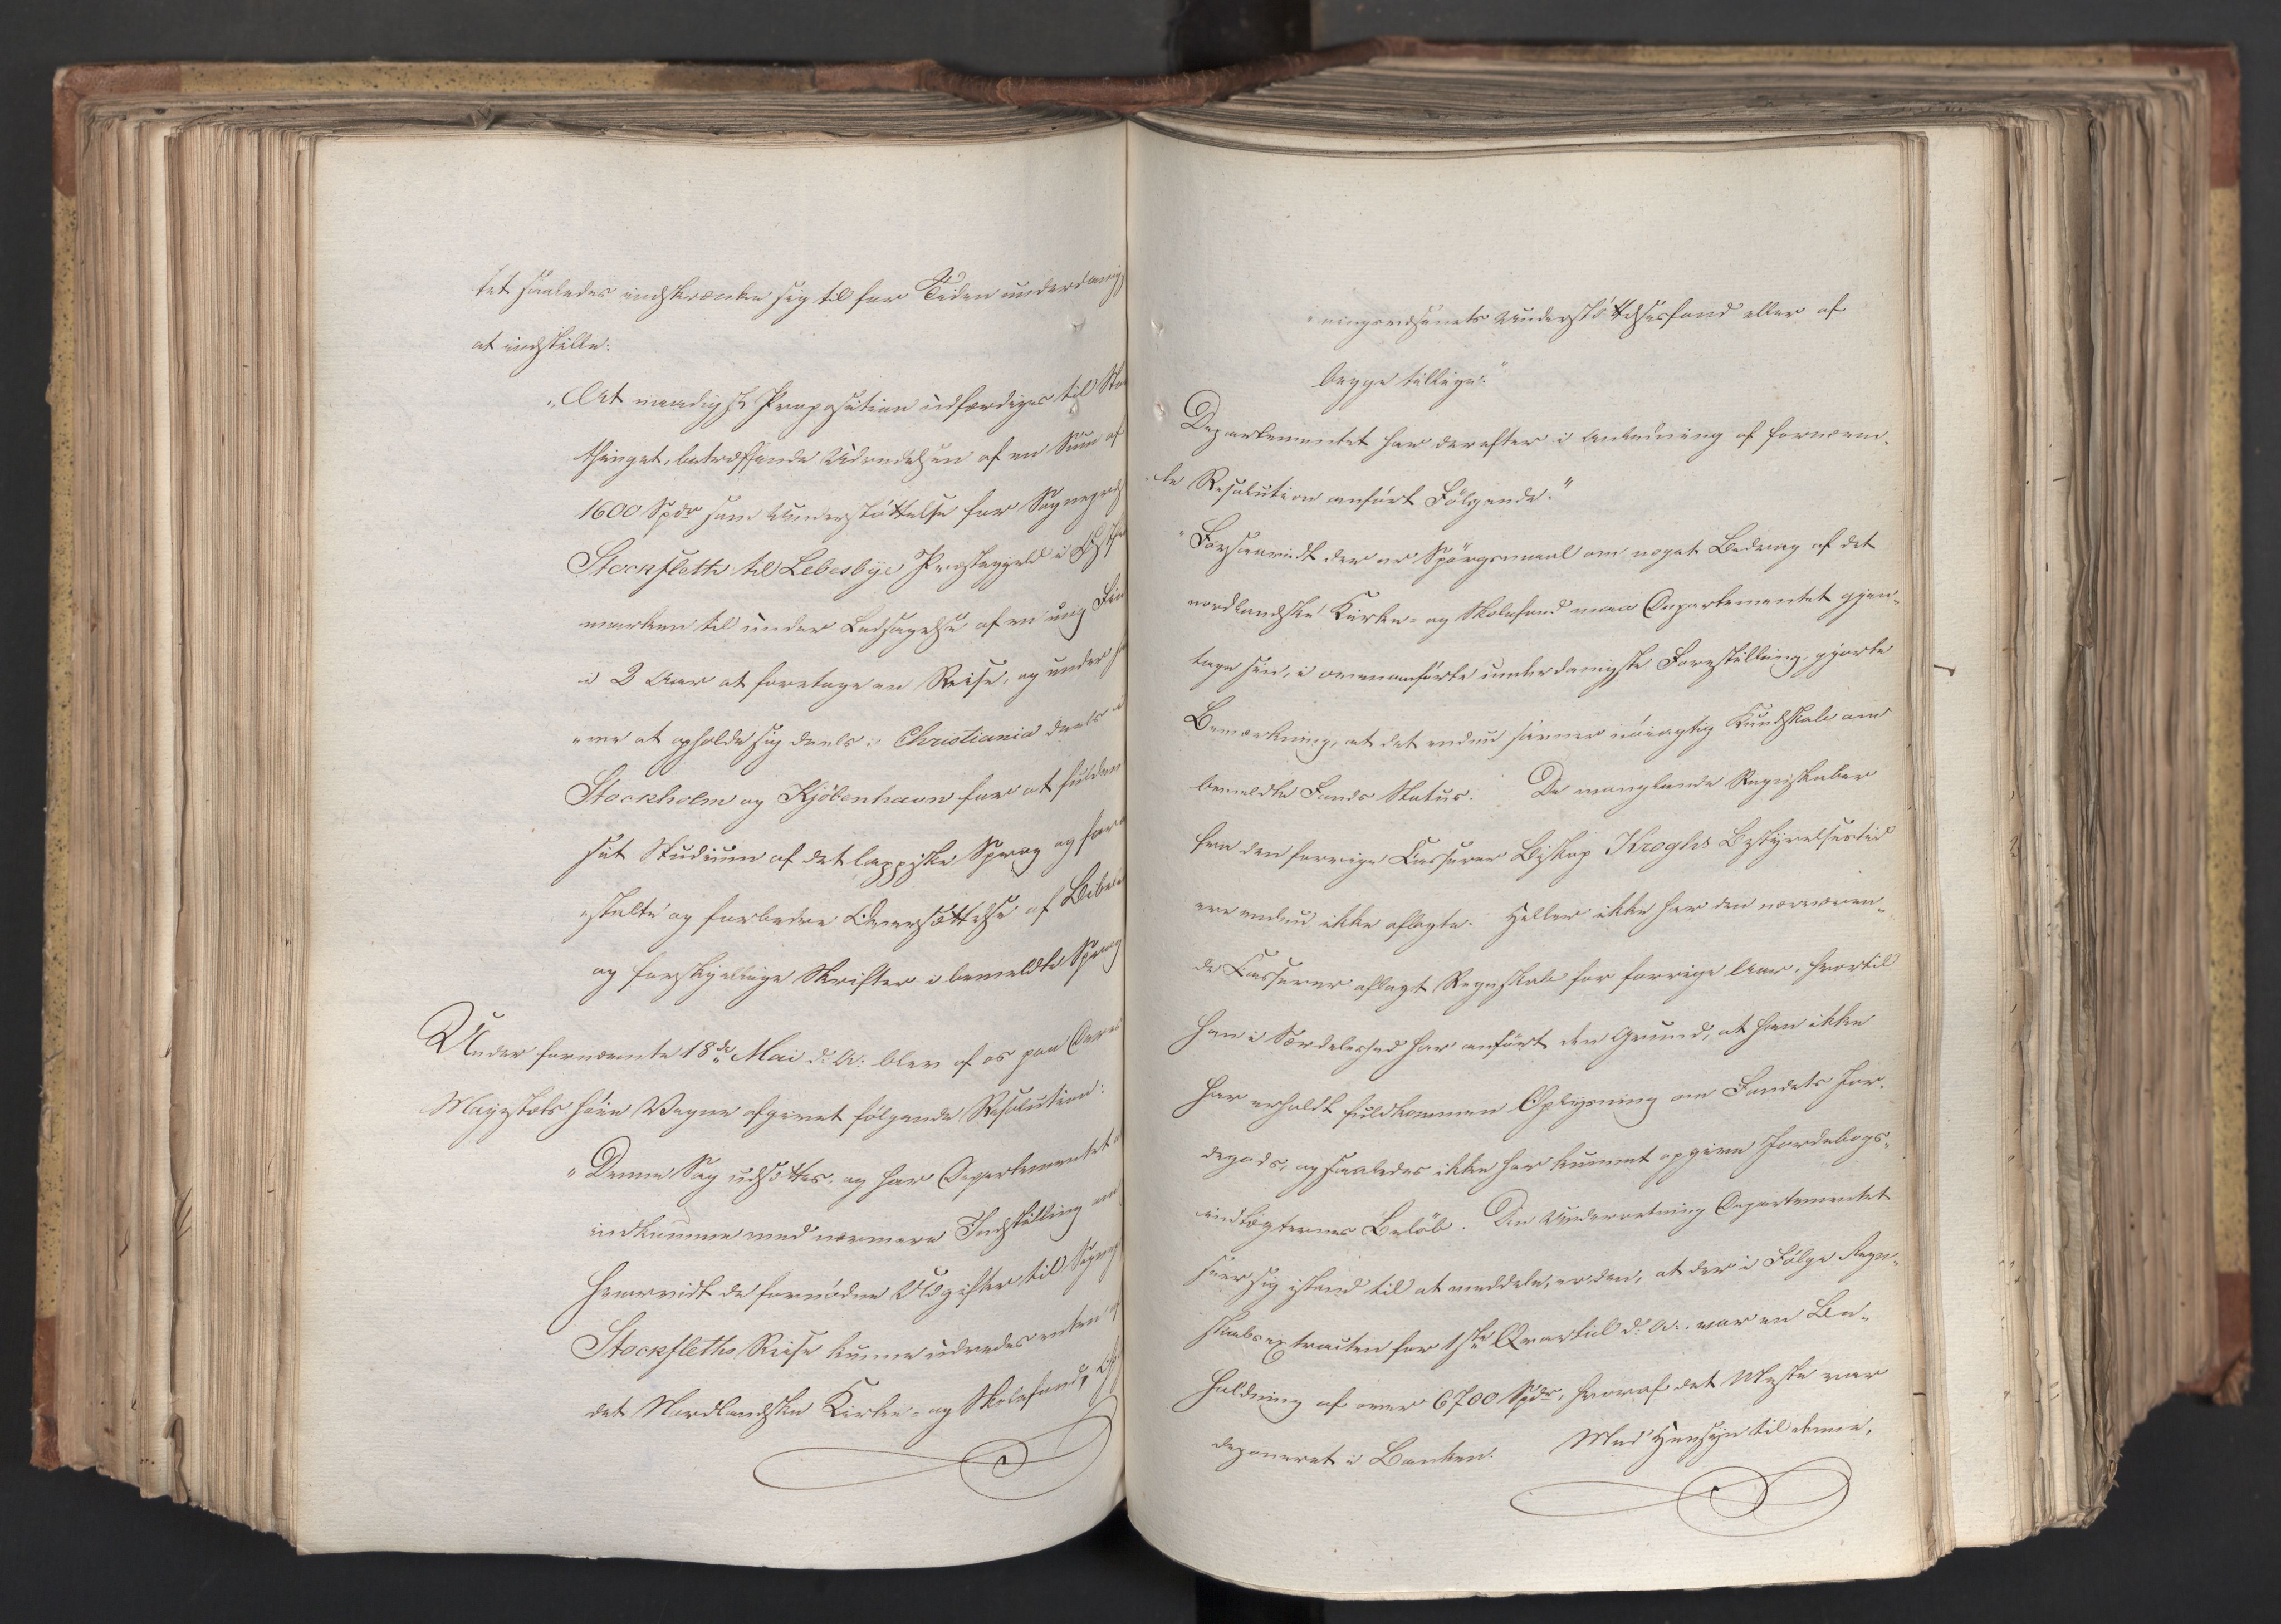 tet saaledes indskrænke sig til for Tiden underdanigst
at indstille:
"At naadigst Proposition udfærdiges til Stor
thinget, betræffende Udredelsen af en Sum af
1600 Spdr som Understøttelse for Sognepræst
Stockfleth til Lebesbye Præstegjeld i Øst
marken til under Ledsagelse af en ung Fin
i 2 Aar at foretage en Reise, og under
me at opholde sig deels i Christiania deels i
Stockholm og Kjøbenhavn for at fulden
sit Studium af det lappiske Sprog og fore
stalte og forbedre Oversættelse af Bibel
og forskjellige Skrifter i bemeldte Sprog
Under fornævnte 18de Mai d: A: blev af os paa Deres
Majestæts høie Vegne afgivet følgende Resolution:
"Denne Sag udsættes, og har Departementet
indkomme med nærmere Indstilling om,
hvorvidt de fornødne Udgifter til Sognep
Stockfleths Reise kunne udredes enten af
det Nordlandske Kirke- og Skolefond,
ningsvæsenets Understøttelsesfond eller af
begge tillige."
Departementet har derefter i Anledning af fornævn-
te Resolution anført Følgende:"
"Forsaavidt der er Spørgsmaal om noget Bidrag af det
nordlandske Kirke- og Skolefond maa Departementet gjen-
tage sin, i ovenanførte underdanigste Forestilling, gjorte
Bemærkning, at det endnu savner nøiagtig Kundskab om
bemeldte Fonds Status. De manglende Regnskaber
fra den forrige Casserer Biskop Kroghs Bestyrelsestid
ere endnu ikke aflagte. Heller ikke har den nærværen-
de Casserer aflagt Regnskab for forrige Aar, hvortil
han i Særdeleshed har anført den Grund, at han ikke
har erholdt fuldkommen Oplysning om Fondets Jor-
degods, og saaledes ikke har kunnet opgive Jordebogs-
indtægternes Beløb. Den Underretning Departementet
seer sig istand til at meddele, er den, at der i Følge Regn-
skabsextracten for 1ste Qvartal d: A: var en Be-
holdning af over 6700 Spdr, hvoraf det Meste var
deponeret i Banken. Med Hensyn til denne,